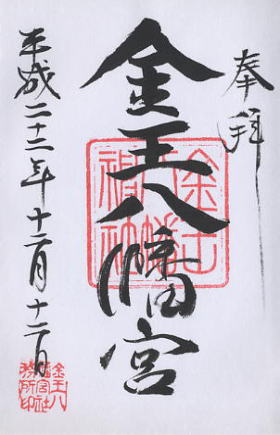 奉拝
金王八幡宮
平成二十二年十二月十二日
金王八幡神社
金王八幡宮社務所印